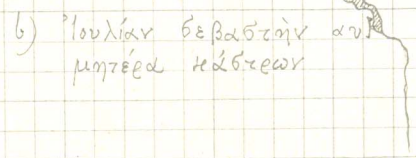 b) Ἰουλίαν σεβαστὴν αυ]
μητέρα κάστρων